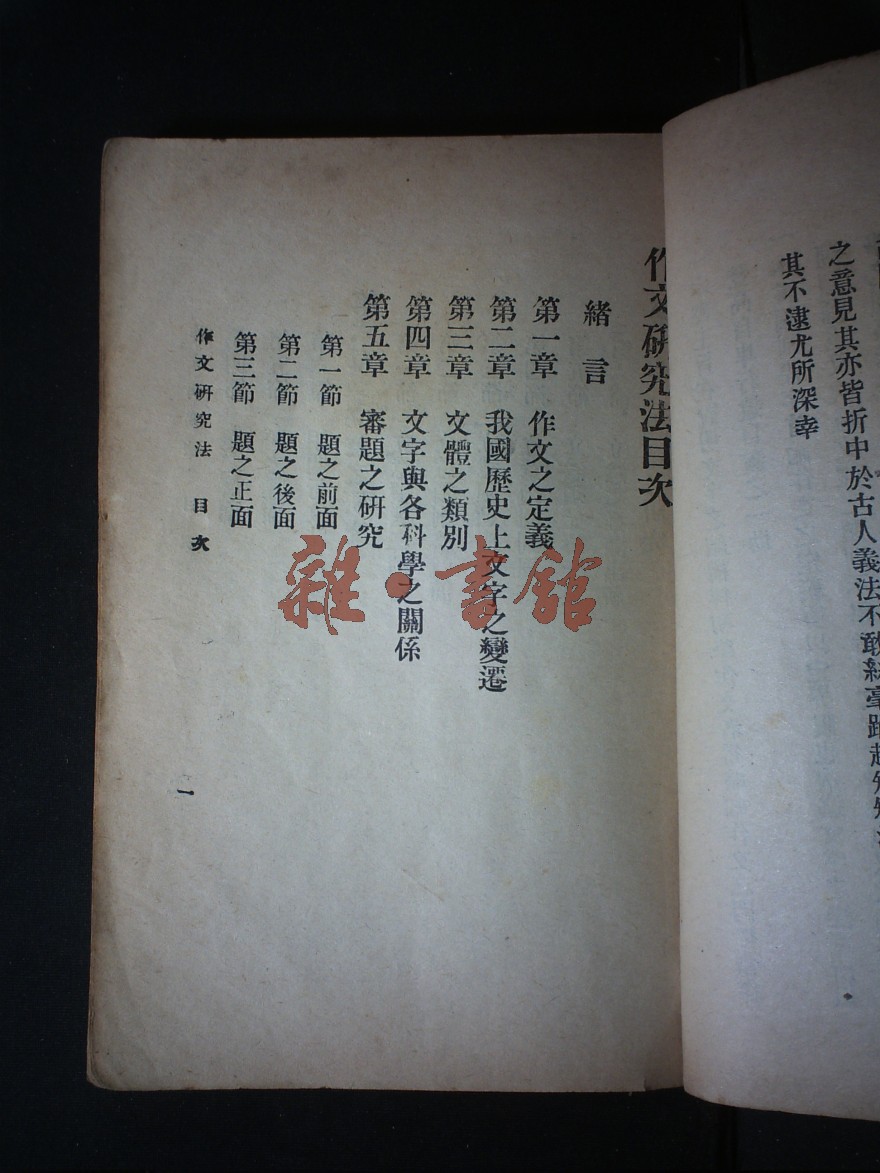 之意見其亦皆折中於古人義法不敢絲毫踰越
其不逮尤所深幸
作文研究法目次
緒言
第一章 作文之定義
第二章 我國歷史上文字之變遷
第三章 文體之類別
第四章 文字與各科學之關係
第五章 審題之研究
第一節 題之前面
第二節 題之後面
第三節 題之正面
作文研究法 目次
一
雜·書館